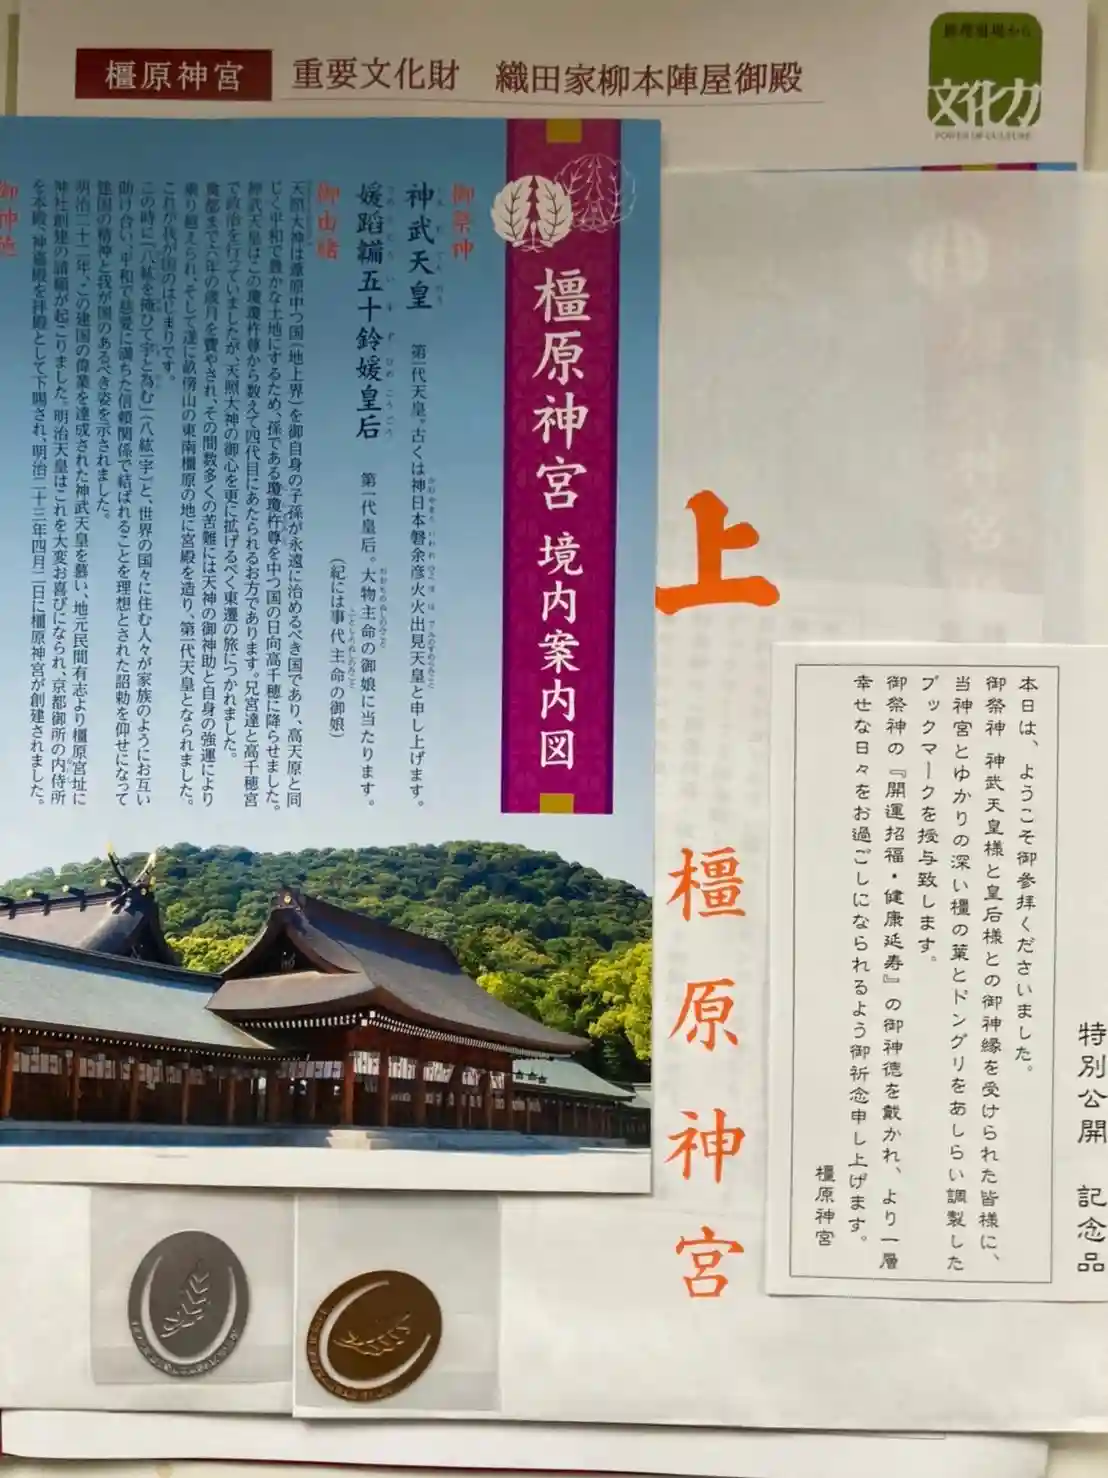 橿原神宮 重要文化財 織田家柳本陣屋御殿
修理現場から
文化力
POWER OF CULTURE
橿原神宮 境内案内図
御祭神
神武天皇 第一代天皇。古くは神日本磐余彦火火出見天皇と申し上げます。
媛蹈鞴五十鈴媛皇后 第一代皇后。大物主命の御娘に当たります。
(紀には事代主命の御娘)
御由緒
天照大神は葦原中つ国(地上界)を御自身の子孫が永遠に治めるべき国であり、高天原と同
じく平和で豊かな土地にするため、孫である瓊瓊杵尊を中つ国の日向高千穂に降らせました。
神武天皇はこの瓊瓊杵尊から数えて四代目にあたられるお方であります。兄宮達と高千穂宮
で政治を行っていましたが、天照大神の御心を更に拡げるべく東遷の旅につかれました。
奠都まで六年の歳月を費やされ、その間数多くの苦難には天神の御神助と自身の強運により
乗り越えられ、そして遂に畝傍山の東南橿原の地に宮殿を造り、第一代天皇となられました。
これが我が国のはじまりです。
この時に「八紘を掩ひて宇と為む」(八紘一宇)と、世界の国々に住む人々が家族のようにお互い
助け合い、平和で慈愛に満ちた信頼関係で結ばれることを理想とされた詔勅を仰せになって
建国の精神と我が国のあるべき姿を示されました。
明治二十二年、この建国の偉業を達成された神武天皇を慕い、地元民間有志より橿原宮址に
神社創建の請願が起こりました。明治天皇はこれを大変お喜びになられ、京都御所の内侍所
を本殿、神嘉殿を拝殿として下賜され、明治二十三年四月二日に橿原神宮が創建されました。
上
橿原神宮
特別公開 記念品
本日は、ようこそ御参拝くださいました。
御祭神 神武天皇様と皇后様との御神縁を受けられた皆様に、
当神宮とゆかりの深い橿の葉とドングリをあしらい調製した
ブックマークを授与致します。
御祭神の『開運招福・健康延寿』の御神徳を戴かれ、より一層
幸せな日々をお過ごしになられるよう御祈念申し上げます。
橿原神宮